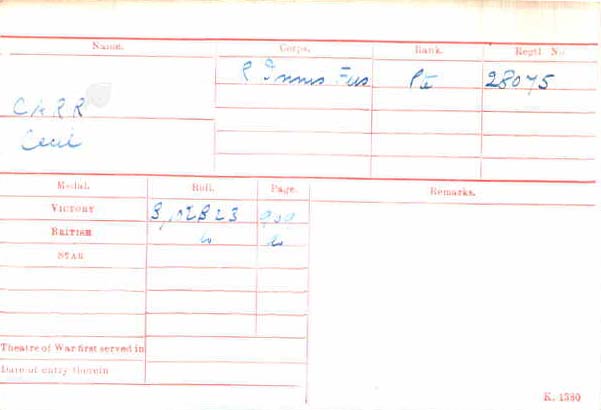 Name. Corps. Rank. Regtl. No
R Innis Fus Pte 28075
CARR
Cecil
Medal. Roll. Page. Remarks.
VICTORY
BRITISH do do
STAR
Theatre of War first served in
Date of entry therein
K. 1380